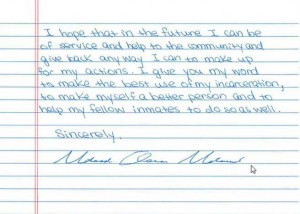 I hope that in the future I can be
of service and help to the community and
give back anyway I can to make up
for my actions. I give you my word
to make the best use of my incarceration,
to make myself a better person and to
help my fellow inmates to do so as well.
Sincerely,